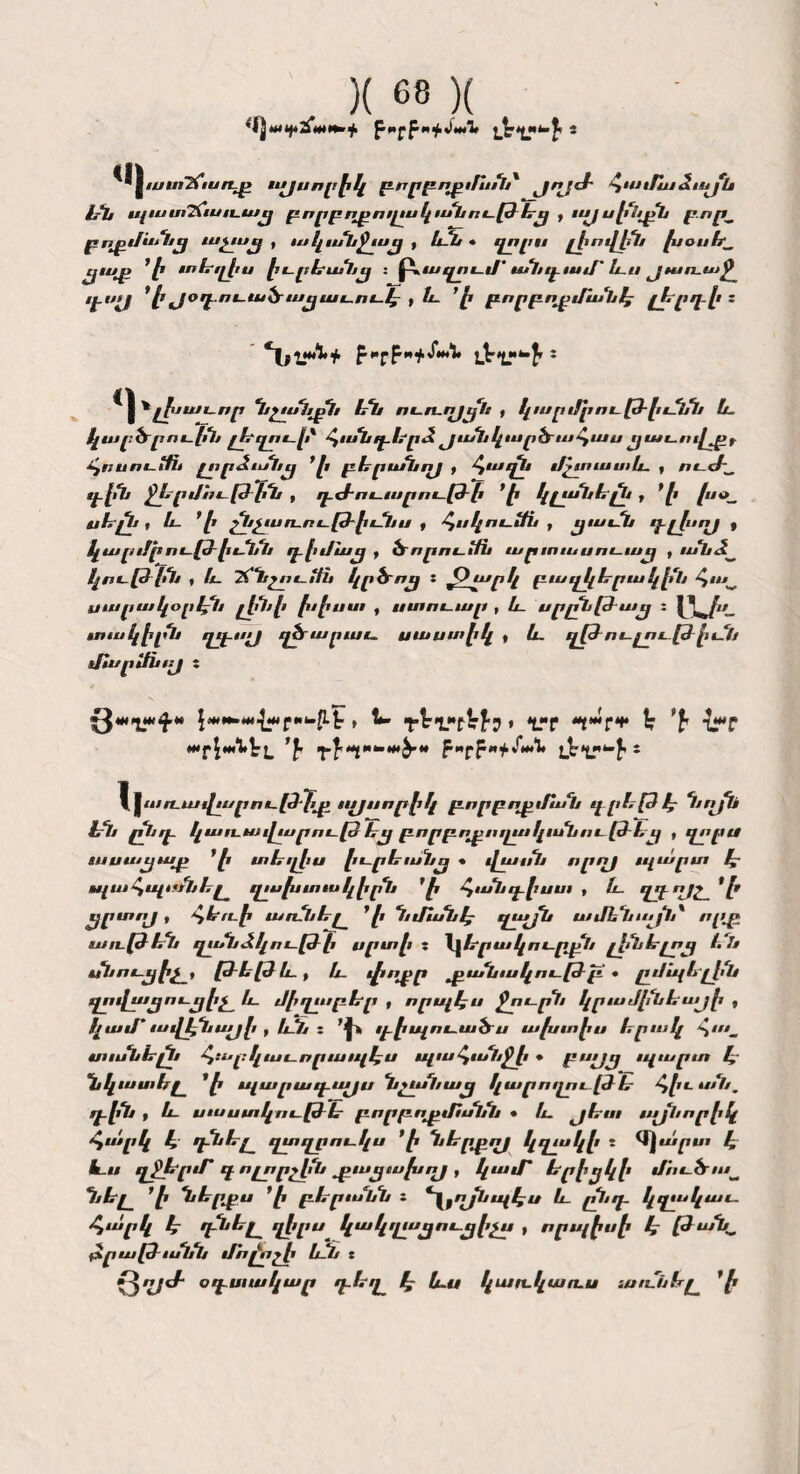 )( 68 )(
Պատճառք բորբոքման լեզուի ։
Պատճառք այսորիկ բորբոքման՝ յոյժ համաձայն
են պատճառաց բորբոքողականութեց , այսինքն բոր֊
բոքմանց աչաց , ականջաց , ևն • զորս լիովին խօսե֊
ցաք ՚ի տեղիս իւրեանց ։ Բազում՝ անգամ՝ ևս յառաջ
գայ ՚ի յօդուածացաւուէ , և ՚ի բորբոքմանէ լերդի ։
Նշանք բորբոքման լեզուի ։
Գլխաւոր նշանքն են ուռոյցն , կարմրութիւնն և
կարծրուին լեզուի՝ հանդերձ յանկարծահաս ցաւովք,
հոսումն լորձանց ՚ի բերանոյ , հազն մշտատև , ուժ֊
գին ջերմութին , դժուարութի ՚ի կլանելն , ՚ի խօ֊
սելն , և ՚ի շնչառութիւնս , հսկումն , ցաւն գլխոյ ,
կարմրութիւնն դիմաց , ծորումն արտասուաց , անձ֊
կութին , և ճնշումն կրծոց ։ Զարկ բազկերակին հա֊
սարակօրէն լինի խիստ , ստուար , և արընթաց ։ Ախ֊
տակիրն զգայ զծարաւ սաստիկ , և զթուլութիւն
մարմնոյ ։
Յաղագս կառավարութե , և դեղօրէից , զոր պարտ է ՚ի վար
արկանել ՚ի դիպուածս բորբոքման լեզուի ։
Կառավարութիք այսորիկ բորբոքման գրեթէ նոյն
են ընդ կառավարութեց բորբոքողականութեց , զորս
ասացաք ՚ի տեղիս իւրեանց • վասն որոյ պարտ է
պահպանել զախտակիրն ՚ի հանգիստ , և զգոյշ ՚ի
ցրտոյ , հեռի առնել ՚ի նմանէ զայն ամենայն՝ որք
առթեն զանձկութի սրտի ։ Կերակուրքն լինելոց են
անուցիչ , թեթև , և փոքր քանակութբ • ըմպելին
զովացուցիչ և միղաբեր , որպէս ջուրն կրամինեայի ,
կամ՝ ավէնայի , ևն ։ ՚Ի դիպուածս ախտիս երակ հա֊
տանելն հարկաւորապէս պահանջի • բայց պարտ է
նկատել ՚ի պարագայս նշանաց կարողութե հիւան֊
դին , և սաստկութե բորբոքմանն • և յետ այնորիկ
հարկ է դնել զտզրուկս ՚ի ներքոյ կզակի ։ Պարտ է
ևս զջերմ գոլորշին քացախոյ , կամ՝ երիցկի մուծա֊
նել ՚ի ներքս ՚ի բերանն ։ Նոյնպէս և ընդ կզակաւ
հարկ է դնել զիրս կակղացուցիչս , որպիսի է թան֊
ձրաթանն մոլոշի ևն ։
Յոյժ օգտակար դեղ է ևս կառկառս առնել ՚ի